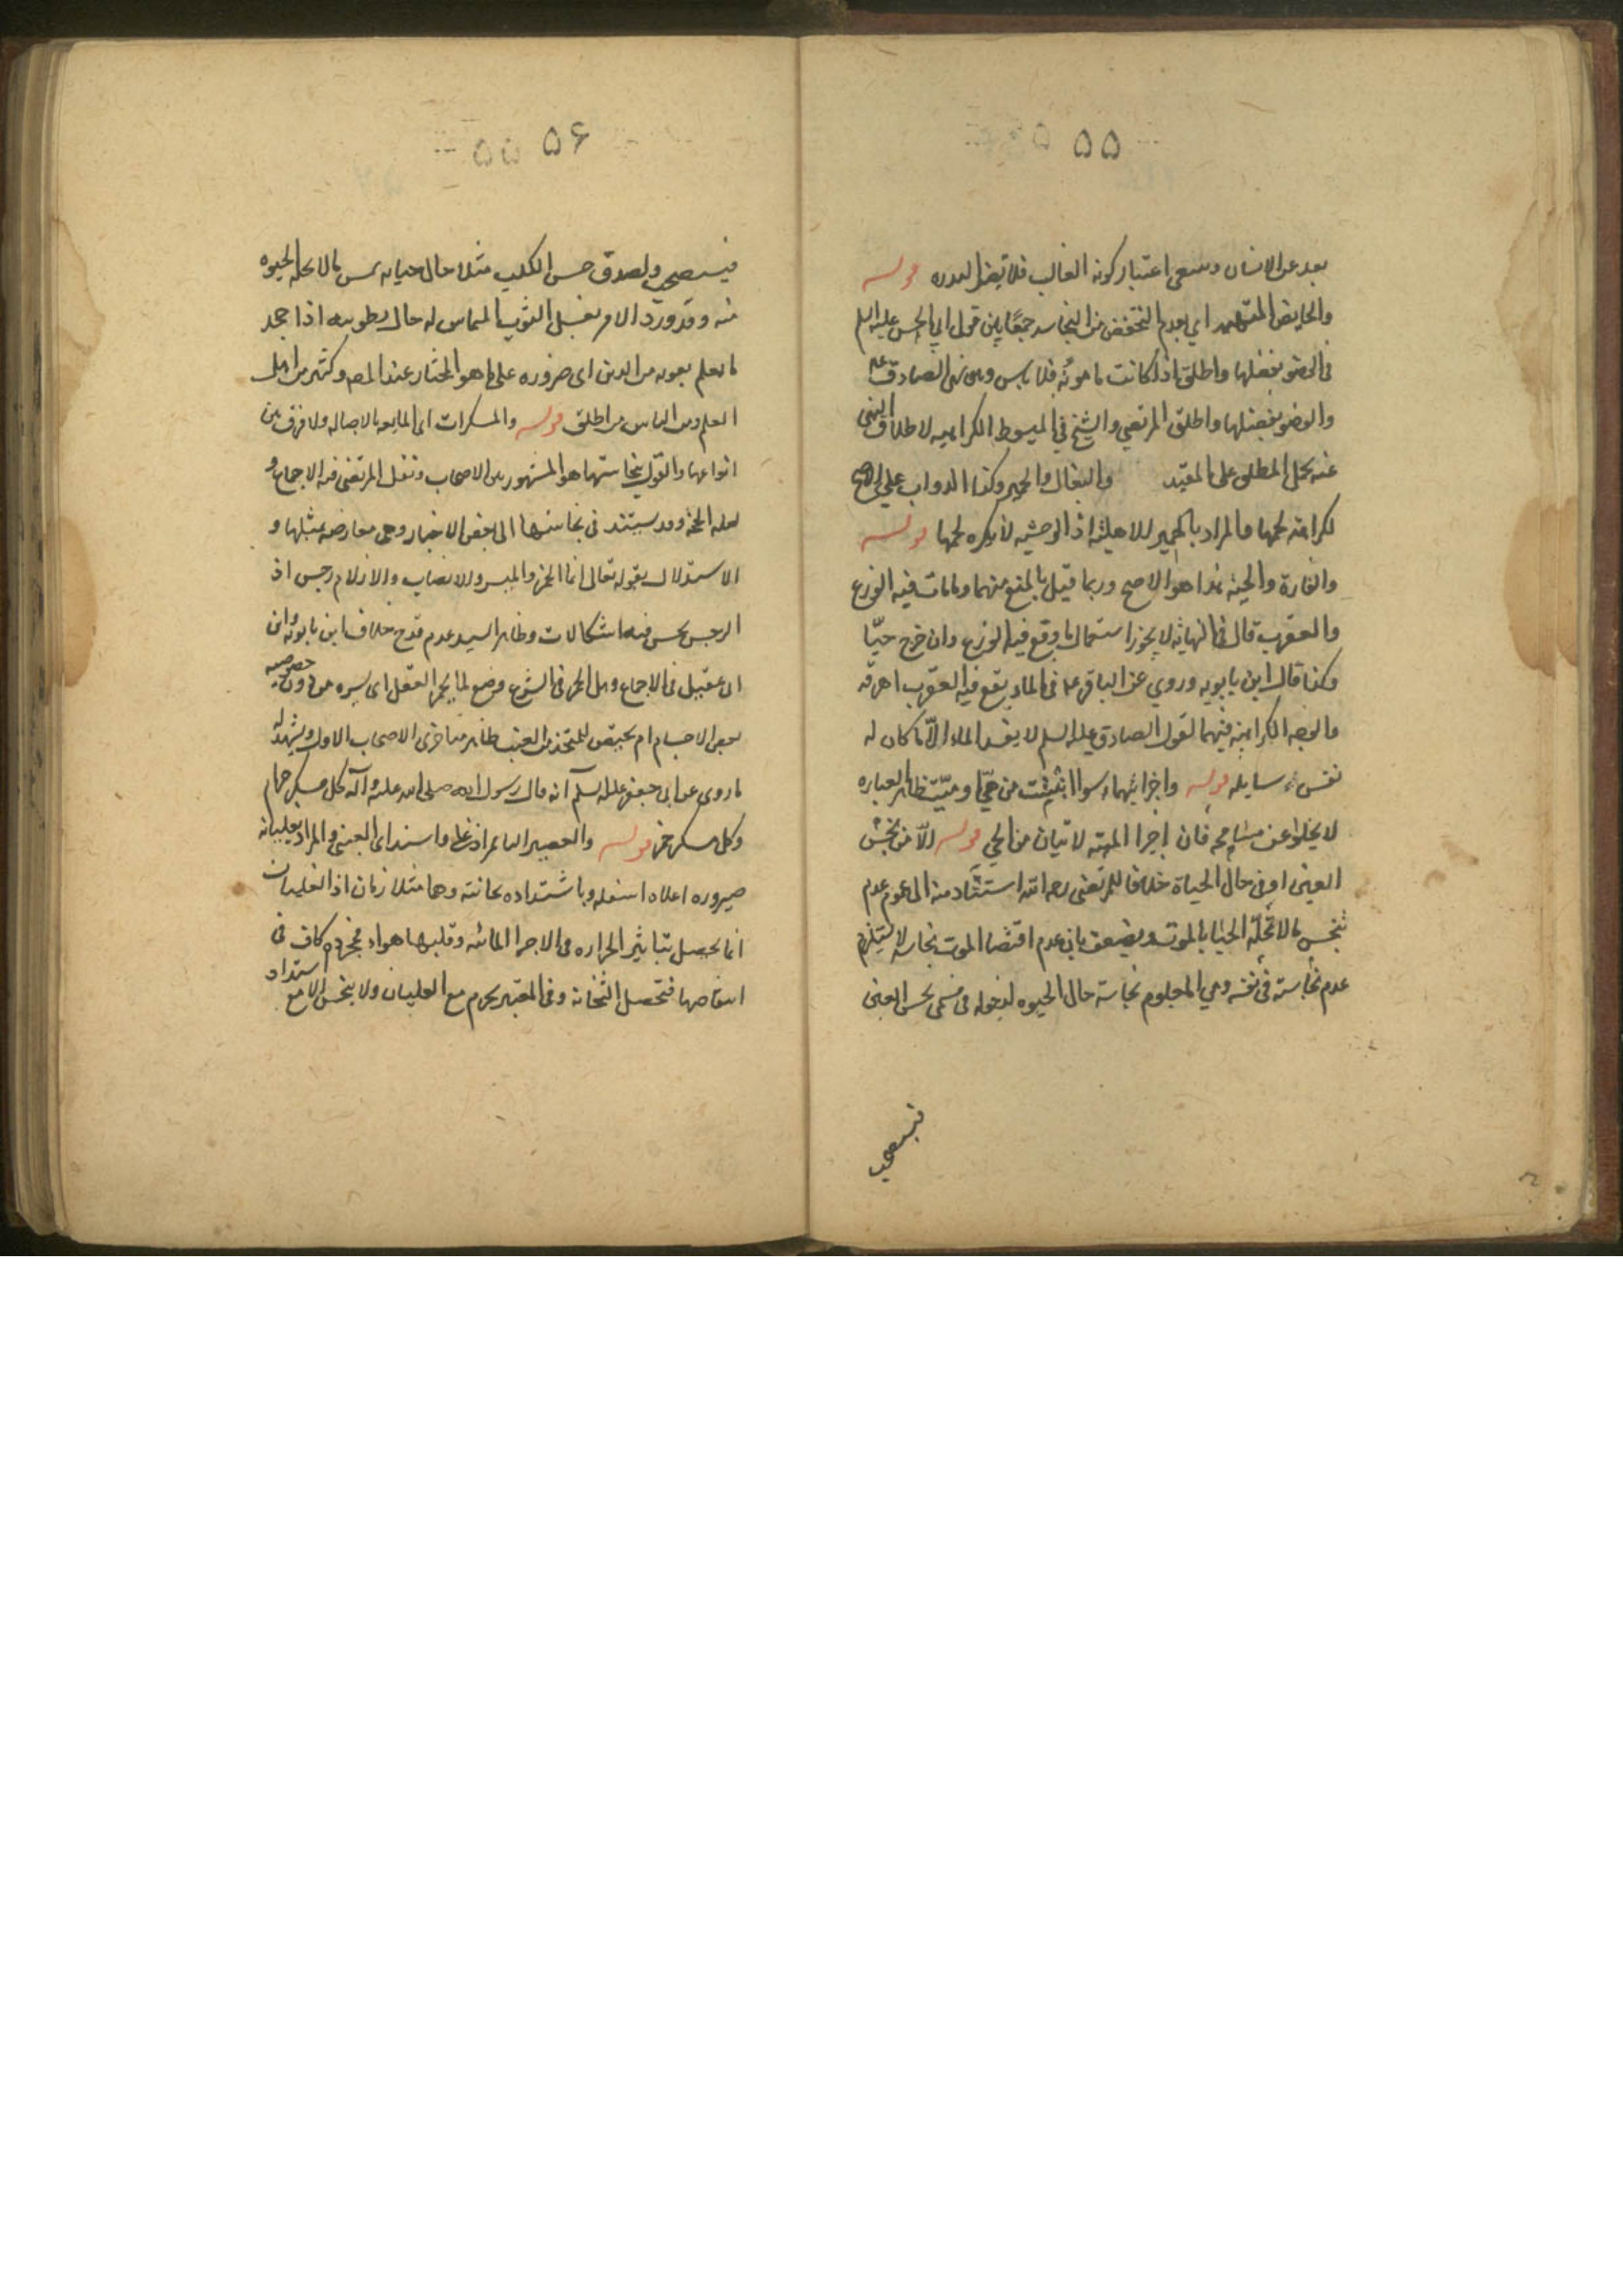 ۵۵
بعد عن الانسان وينبغي اعتبار كونه الغالب فلا يضر الندره قوله
والحايض المتهمه اي بعدم التحفظ من النجاسه جمعا بين قول ابي الحسن عليه السلم
في الوضو بفضلها واطلق اذا كانت مامونه فلا باس وبين نهي الصادق عليه
والوضو بفضلها واطلق المرتضي والشيخ في المبسوط الكراهيه لاطلاق النهي
عنه بحمل المطلق علي المقيد والبغال والحمير وكذا الدواب علي الاصح
لكراهة لحمها والمراد بالحمير الاهليه اذ الوحشيه لا يكره لحمها قوله
والفارة والحية هذا هو الاصح وربما قيل بالمنع منهما وما مات فيه الوزغ
والعقرب قال في النهاية لا يجوز استعمال ما وقع فيه الوزغ وان خرج حيّا
وكذا قال ابن بابويه وروي عن الباقر عم في الماء يقع فيه العقرب اهرقه
والوجه الكراهية فيهما لقول الصادق عليه السلم لا يفسد الماء الّا ما كان له
نفس سايله قوله واجزائهما سوا ابينت من حيّ او ميّت ظاهر العباره
لا يخلوا عن مسامحه فان اجزا الميته لا تبان من الحي قوله الّا من نجس
العين او في حال الحياة خلافا للمرتضى رحمه الله استنادا منه الى عموم عدم
تنجس ما لا تحلّه الحياة بالموت ويضعف بان عدم اقتضا الموت نجاسه لا يستلزم
عدم نجاسته في نفسه ومن المعلوم نجاسته حال الحيوه لدخوله في مسمى نجس العين
فيستصحب
۵۶
فيستصحب ولصدق مس الكلب مثلا حال حياته بمس ما لا تحله الحيوه
منه وقد ورد الامر بغسل الثوب المماس له حال رطوبته اذا جحد
ما يعلم ثبوته من الدين اي ضروره على ما هو المختار عند المص وكثير من اهل
العلم ومن الناس من اطلق قوله والمسكرات اي المايعه بالاصاله ولا فرق بين
انواعها والقول بنجاستها هو المشهور بين الاصحاب ونقل المرتضى فيه الاجماع و
لعله الحجه وقد يستند في نجاستها الى بعض الاخبار وهي معارضه بمثلها و
الاستدلال بقوله تعالى انما الخمر والميسر والانصاب والازلام رجس اذ
الرجس نجس فيه اشكالات وظاهر السيد عدم قدح خلاف ابن بابويه وابن
ابي عقيل في الاجماع وهل الخمر في الشرع وضع لما يخمر العقل اي يستره من دون خصوصيه
بعض الاجسام ام يختص بالمتخذ من العنب ظاهر متاخري الاصحاب الاول ويشهد له
ما روي عن ابي جعفر عليه السلم انه قال رسول الله صلى الله عليه وآله كل مسكر حرام
وكل مسكر خمر قوله والعصير العنبي اذا غلا واشتد اي العنبي والمراد بغليانه
صيروره اعلاه اسفله وباشتداده ثخانته وهما متلازمان اذ الغليان
انما يحصل بتاثير الحراره في الاجزا المائيه وقلبها هواء فمجرده كاف في
انتقاصها فتحصل الثخانة وفي المعتبر يحرم مع الغليان ولا ينجس الا مع اشتداد